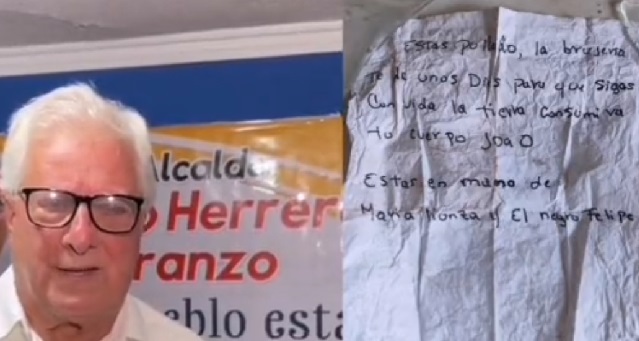 Alcalde
o Herrer
ranzo
eblo esta
Estas la brujeria
te de unos Dias para que sigas
Con vida la tierra Consumiva
to cuerpo Joao
Estas en mano de
Maria lionza y El negro Felipe